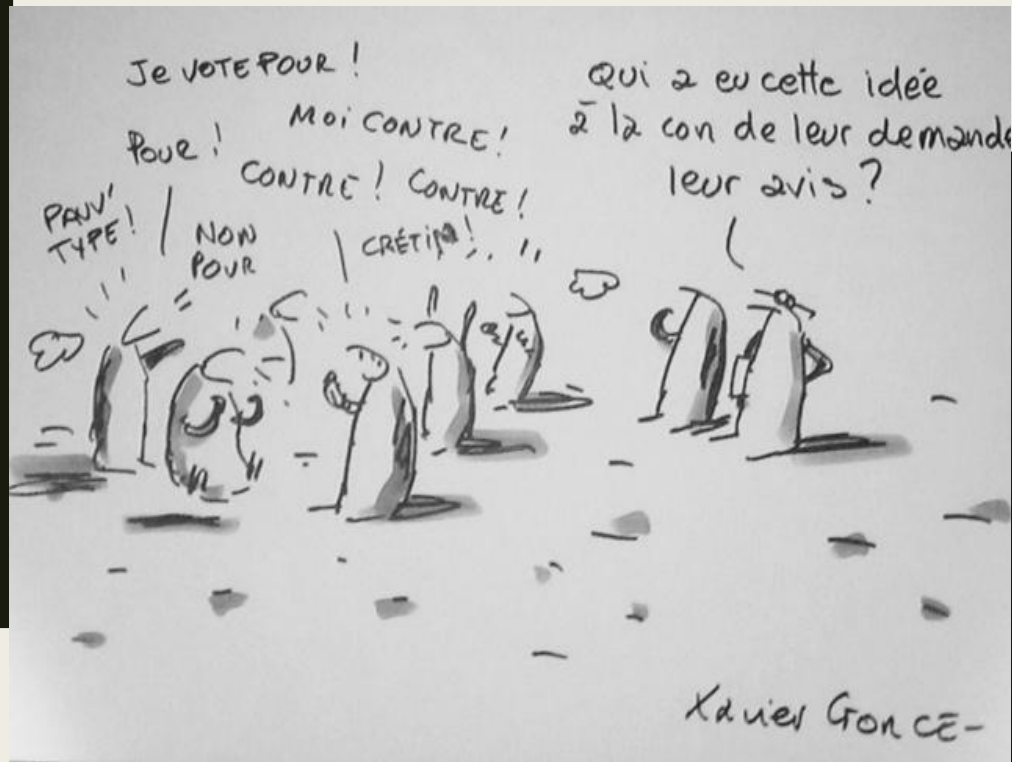 Je VOTE POUR !
POUR !
MOI CONTRE !
CONTRE ! CONTRE !
PAUV'
TYPE !
NON
POUR
CRÉTIN !
Qui a eu cette idée
à la con de leur demande
leur avis ?
Xavier GORCE